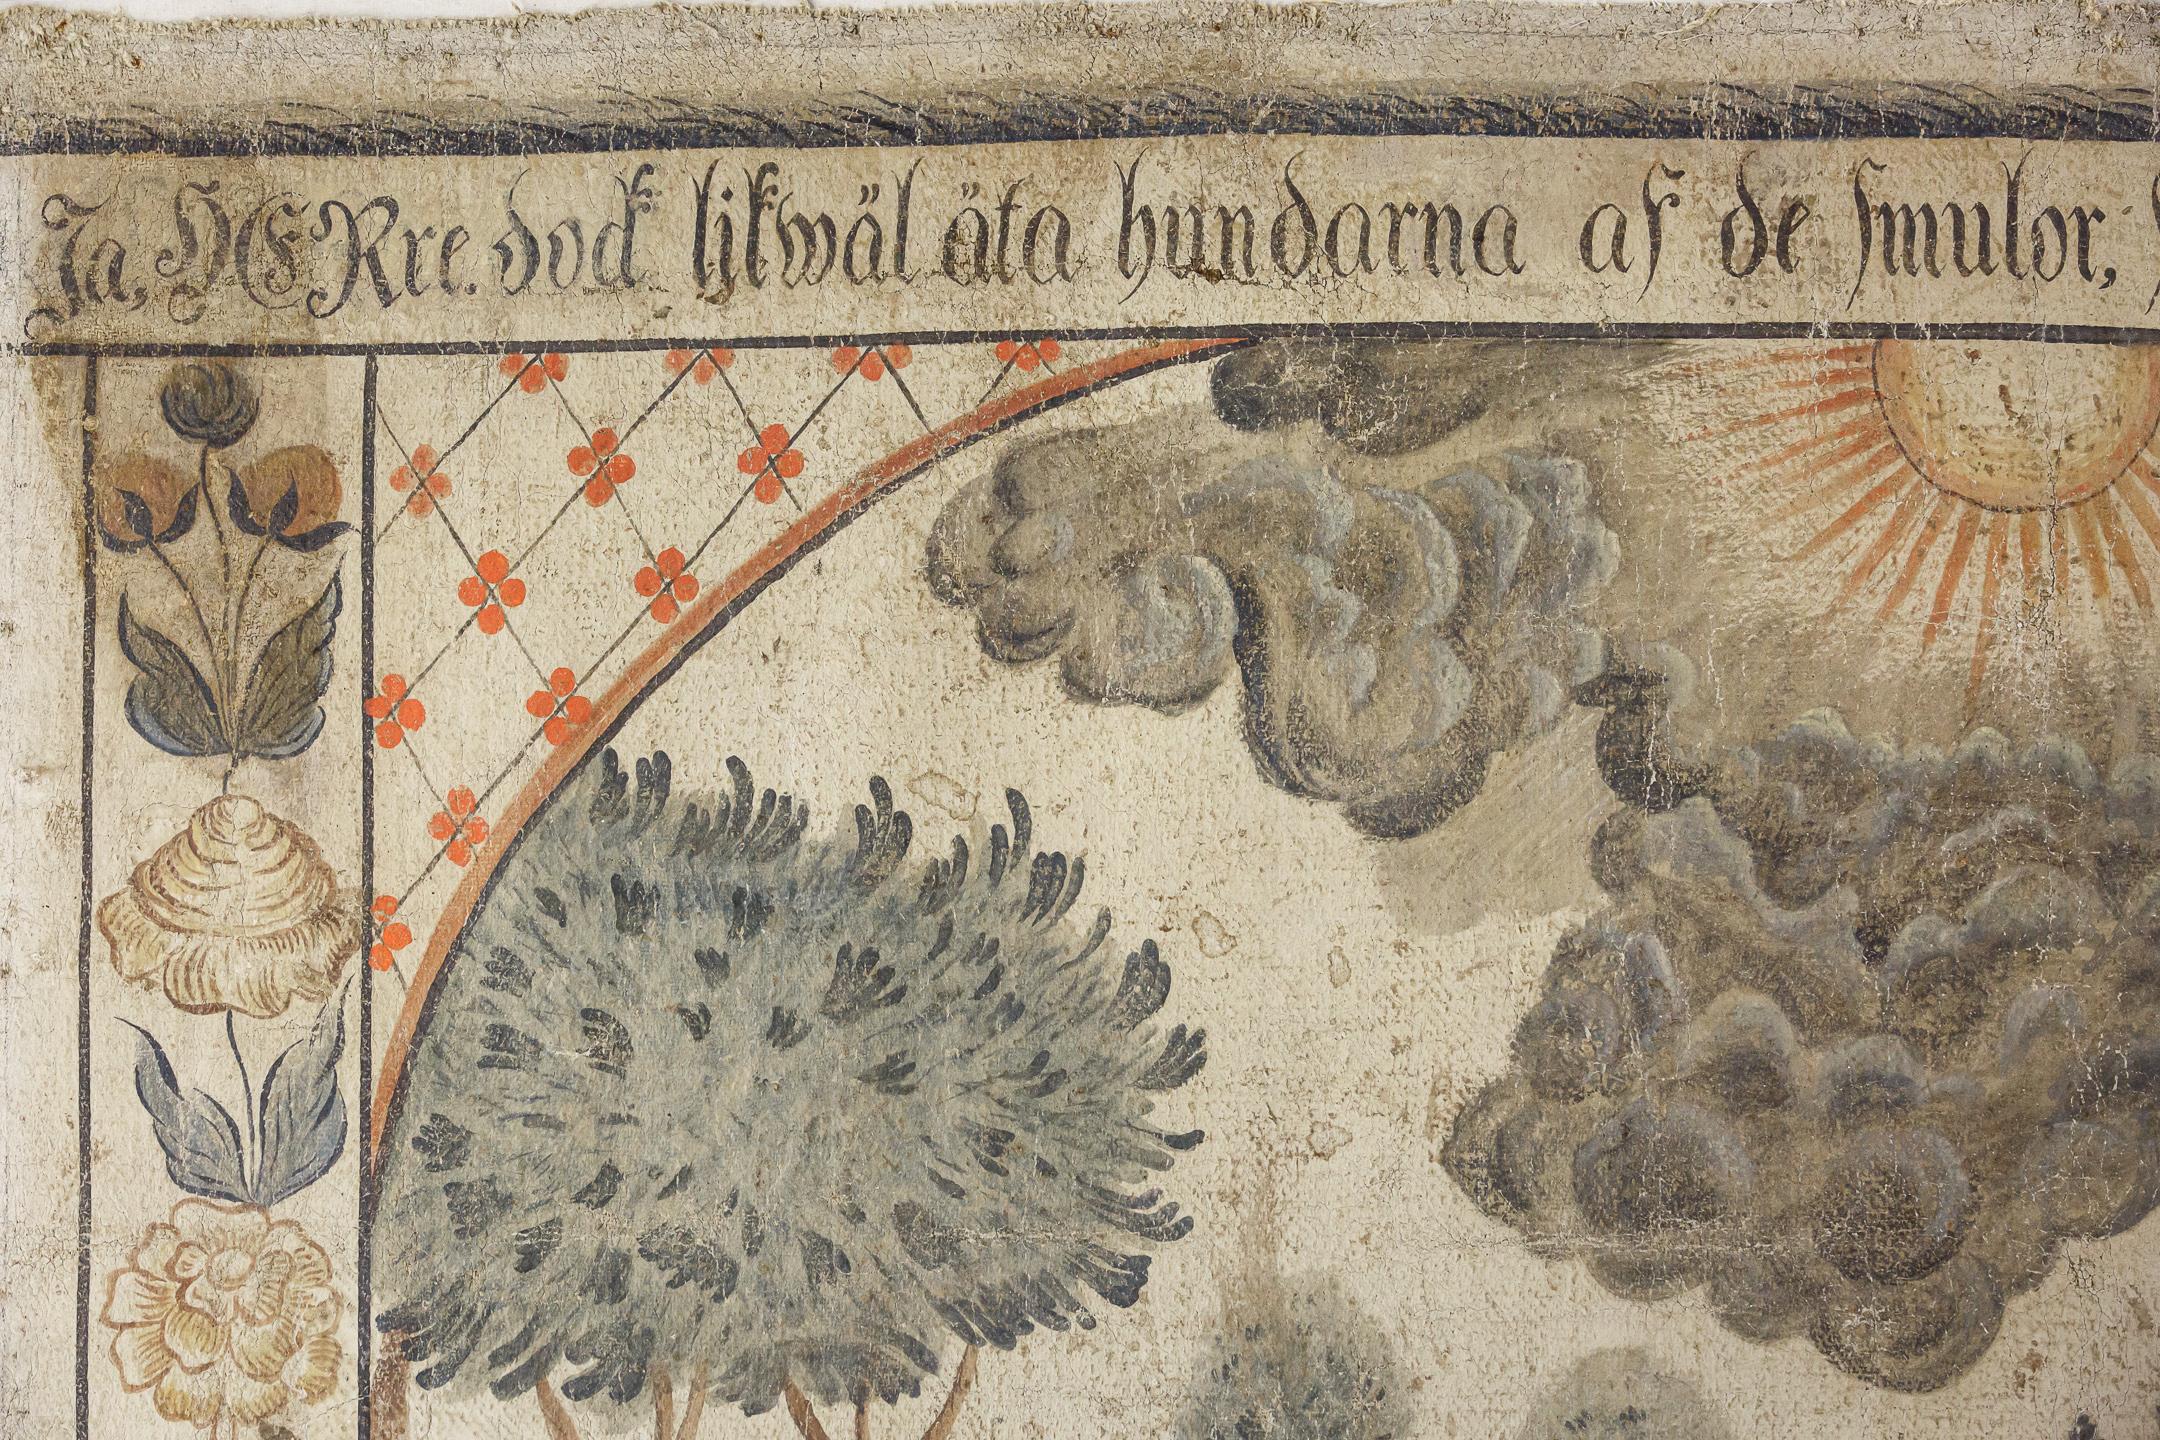 Ja, HERre. dock lijkwäl äta hundarna af de smulor,